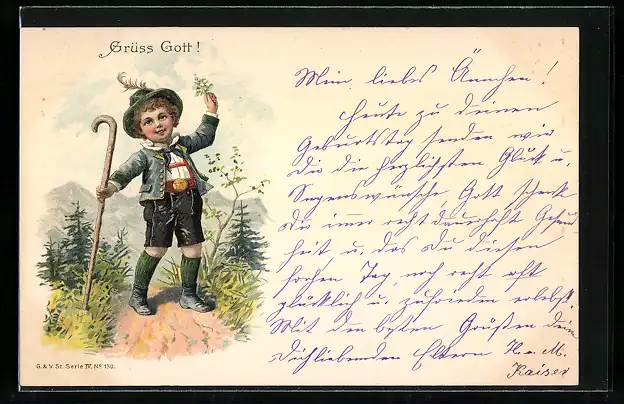 Grüss Gott!
Mein liebes Ännchen!
Heute zu deinem
Geburtstag senden wir
Dir die herzlichsten Glück u.
Segenswünsche, Gott schenke
Dir immer recht dauerhaft Gesund
heit u. das Du diesen
frohen Tag noch recht oft
glücklich u. zufrieden erlebst.
Mit den besten Grüßen deine
Dichliebenden Eltern H. u. M.
Kaiser
G. & V. St. Serie IV. No 130.